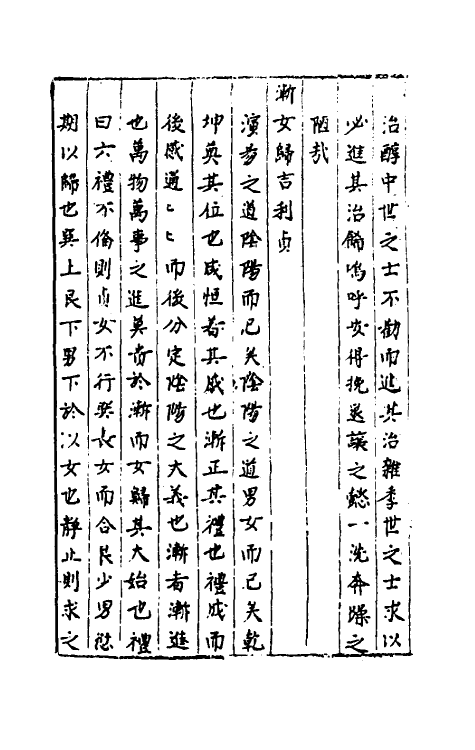 治醇中世之士不勸而進其治雜季世之士求以
必進其治餙嗚呼安得挽退讓之愨一洗奔躁之
陋哉
漸女歸吉利貞
演易之道陰陽而已矣陰陽之道男女而已矣乾
坤奠其位也咸恒着其感也漸正其禮也禮成而
後感通〻〻而後分定陰陽之大義也漸者漸進
也萬物萬事之進莫尚於漸而女歸其大始也禮
曰六禮不俻則貞女不行巽長女而合艮少男愆
期以歸也巽上艮下男下於以女也靜止則求之